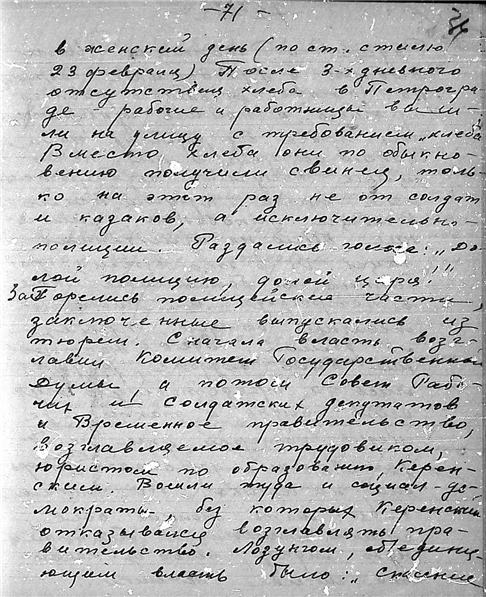 – 71 –
в женский день (по ст. стилю
23 февраля) После 3-х дневного
отсутствия хлеба в Петрогра-
де рабочие и работницы выш-
ли на улицу с требованием „хлеба"
Вместо хлеба они по обыкно-
вению получили свинец, толь-
ко на этот раз не от солдат
и казаков, а исключительно
полиции. Раздались голоса: „До-
лой полицию, долой царя!!"
Загорелись полицейские части,
заключенные выпускались из
тюрем. Сначала власть возг-
лавил Комитет Государственный
Думы, а потом Совет Рабо-
чих и Солдатских депутатов
и Временное правительство,
возглавляемое трудовиком,
юристом по образованию Керен-
ским. Вошли туда и социал-де-
мократы, без которых Керенский
отказывался возглавлять пра-
вительство. Лозунгом, объединя-
ющим власть было: „Спасение